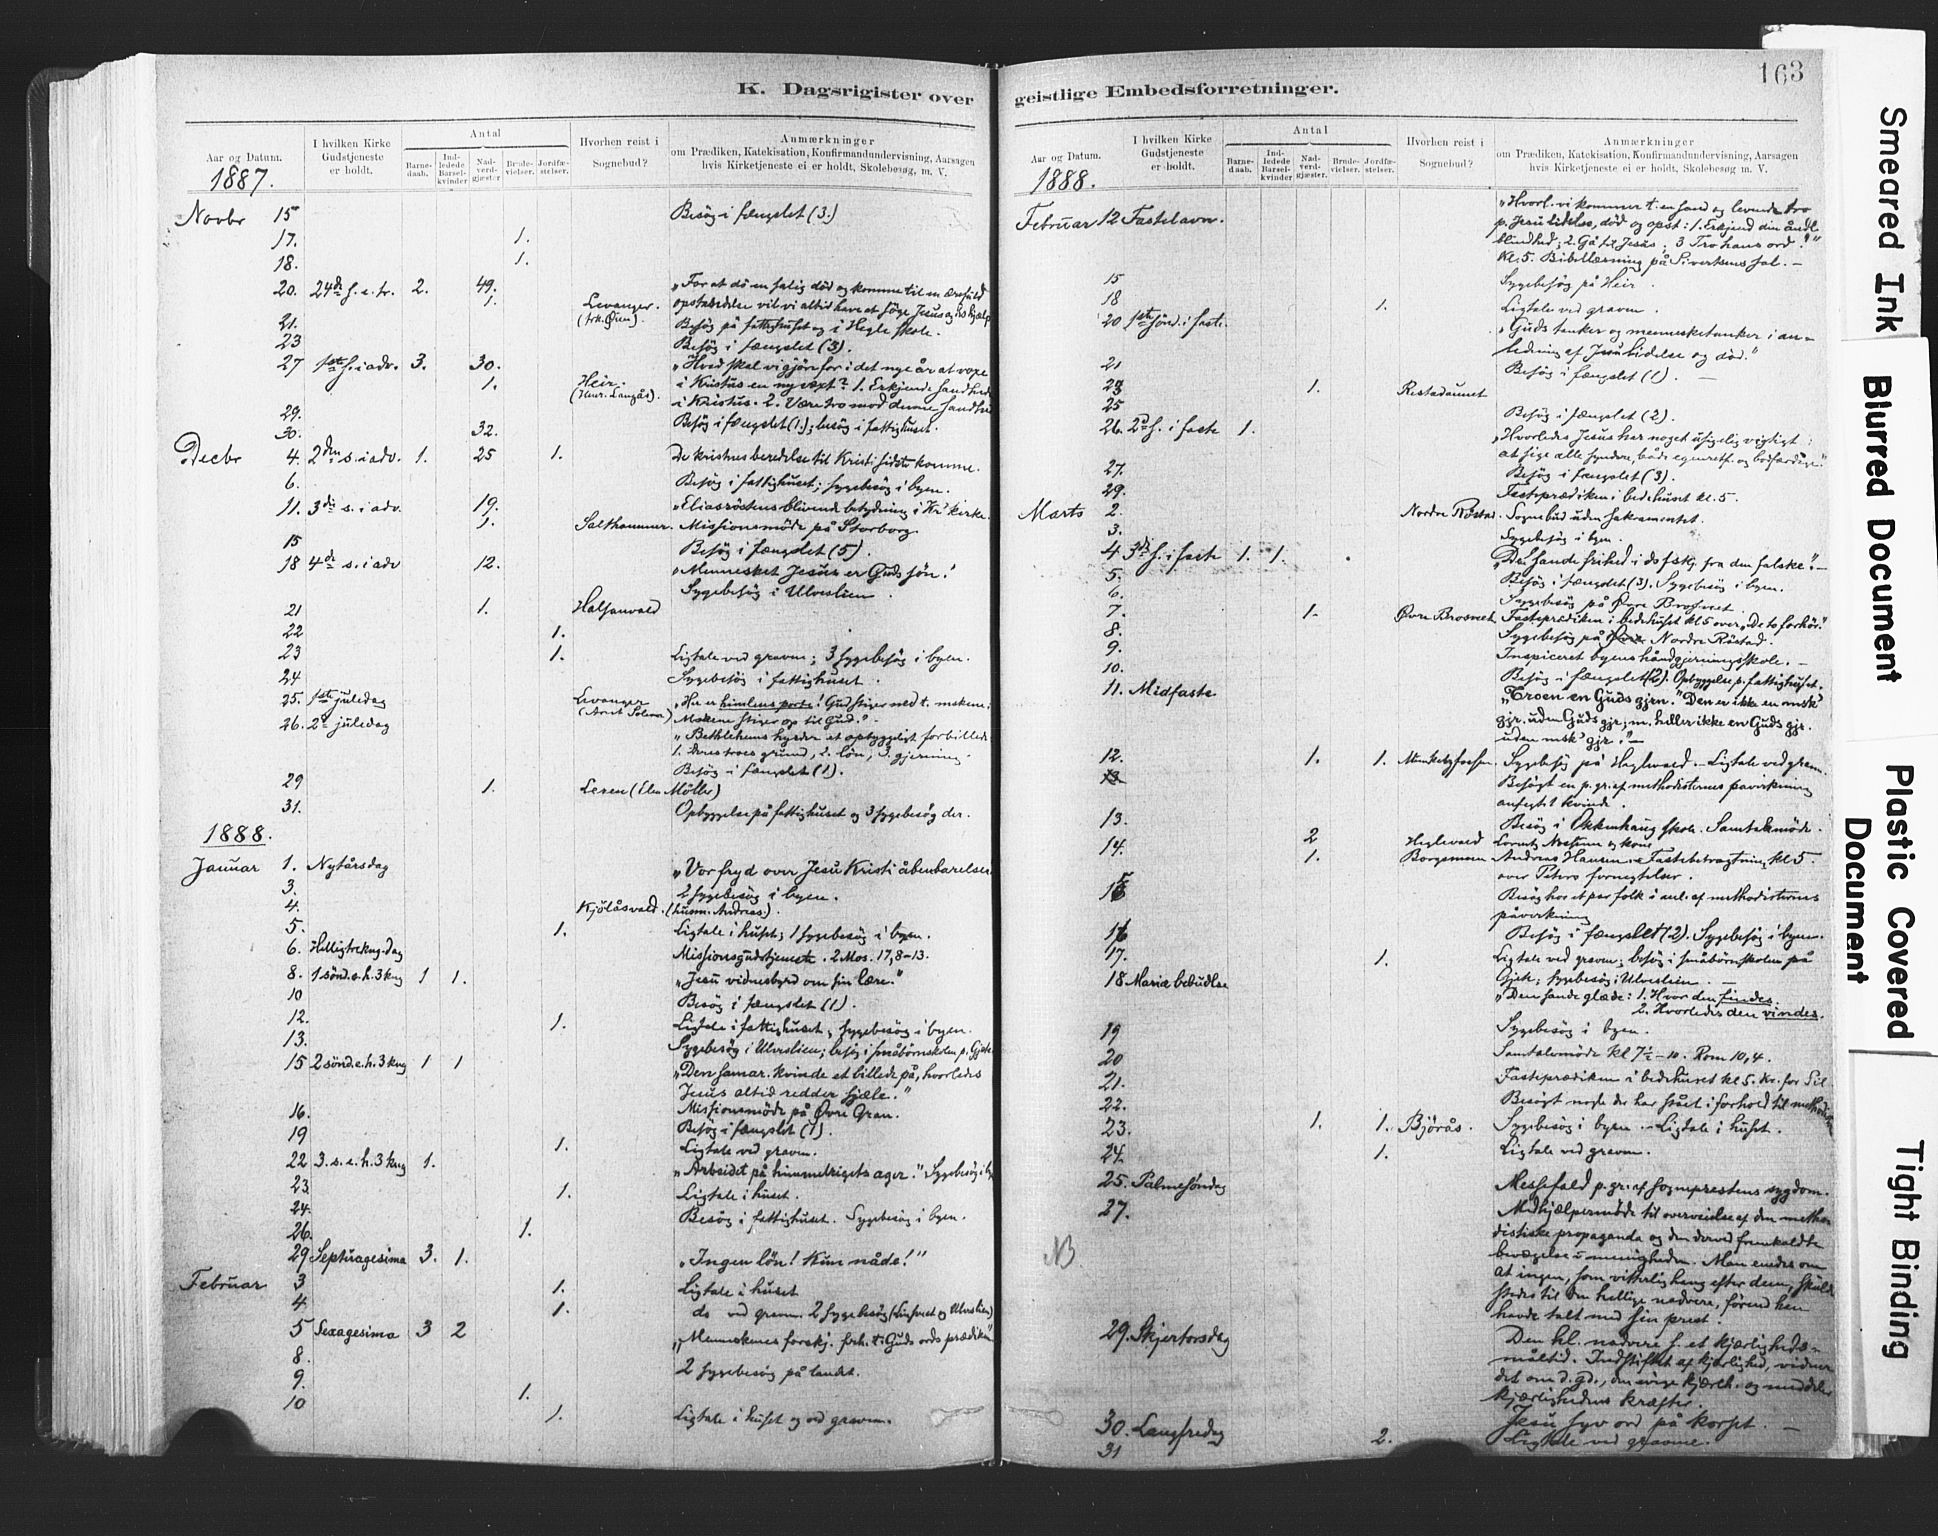 K. Dagsrigister over
Aar og Datum.
I hvilken Kirke
Gudstjeneste
er holdt.
Antal
Barne-
daab.
Ind-
ledede
Barsel-
kvinder
Nad-
verd-
gjæster
Brude-
vielser.
Jordfæ-
stelser.
Hvorhen reist i
Sognebud?
Anmærkninger
om Prædiken, Katekisation, Konfirmandundervisning, Aarsagen
hvis Kirketjeneste ei er holdt, Skolebesøg, m. V.
1887.
Novbr 15 Besög i fængslet (3.)
17. 1.
18. 1.
20. 24de s. e. tr. 2. 49. „For at dö en salig död og komme til en ærefuld
1. Levanger. opstandelse vil vi altid have at söge Jesus og hs hjælp
21. Besög på fattighuset og i Hegle skole.
23 Besög i fængslet (3).
27 1ste s. i adv. 3. 30. „Hvad skal vi gjöre for i det nye år at voxe
1. Heir. i Kristus en ny væxt? 1. Erkjende sandhed
(Henr. Langås). i Kristus. 2. Være tro mod denne sandhed
29. Besög i fængslet (1.); besög i fattighuset.
30. 32.
Decbr 4. 2den s. i adv. 1. 25 1. De kristnes beredelse til Kristi sidste komme.
6. Besög i fattighuset; sygebesög i byen.
11. 3die s. i adv. 19. „Eliasröstens blivende betydning i Kr. kirke.
1. Salthammer. Missionsmöde på Storborg
15 Besög i fængslet (5).
18 4de s. i adv 12. „Mennesket Jesus er Guds sön.
Sygebesög i Ulveslien.
21 1. Halsanvald
22 1.
23 1. Ligtale ved graven; 3 sygebesög i byen.
24 Sygebesög i fattighuset.
25. 1ste juledag Levanger „Her er himlens porte! Gud stiger ned t. mskene;
26. 2den juledag Mskene stiger op til Gud."
„Bethlehems hyrder et opbyggeligt forbillede
1. deres troes grund, 2. lön, 3. gjerning.
Besög i fængslet (1).
29 1. Leren (Elen Möller)
31. Opbyggelse på fattighuset og 3 sygebesög der.
1888.
Januar 1. Nytårsdag „Vor fryd over Jesu Kristi åbenbarelse
3. 2 sygebesög i byen.
4. Kjölåsvald. (husm. Andreas).
5. 1. Ligtale i huset; 1 sygebesög i byen.
6. Helligtrekng.dag Missionsgudstjeneste. 2 Mos. 17, 8-13.
8. 1 sönd. e. h. 3 kng 1 1. „Jesu vidnesbyrd om sin lære."
10 Besög i fængslet (1).
12. 1. Ligtale i fattighuset; sygebesög i byen.
13. Sygebesög i Ulveslien; besög i småbörnskolen p. Gjek
15 2 sönd. e. h. 3 kng 1 1 „Den samar. kvinde et billede på, hvorledes
Jesus altid redder sjæle."
16. Missionsmöde på Övre Gran.
19 Besög i fængslet (1).
1. Ligtale ved graven.
22 3. s. e. h. 3 kng 1. „Arbeidet på himmelrigets ager." Sygebesög i by
23. 1. Ligtale i huset.
24. Besög i fattighuset. Sygebesög i byen.
26. 1.
29 Septuagesima 3. 1. „Ingen lön! Kun nåde!"
Februar 3 1. Ligtale i huset
4. 1. do ved graven. 2 sygebesög
5 Sexagesima 3 2 „Menneskenes forskj. forh. t. Guds ords prædiken"
8. 2 sygebesög på landet.
9. 1.
10 1. Ligtale i huset og ved graven.
163
geistlige Embedsforretninger.
Aar og Datum.
I hvilken Kirke
Gudstjeneste
er holdt.
Antal
Barne-
daab.
Ind-
ledede
Barsel-
kvinder
Nad-
verd-
gjæster.
Brude-
vielser.
Jordfæ-
stelser.
Hvorhen reist i
Sognebud?
Anmærkninger
om Prædiken, Katekisation, Konfirmandundervisning, Aarsagen
hvis Kirketjeneste ei er holdt, Skolebesøg m. V.
1888.
Februar 12 Fastelavn. „Hvorl. vi kommer t. en sand og levende tro
p. Jesu lidelse, död og opst: 1. Erkjend din åndl.
blindhed; 2. Gå til Jesus; 3 Tro hans ord!"
Kl. 5. Bibellæsning på Sivertsens sal. —
15 Sygebesög på Heir.
18 1. Ligtale ved graven.
20 1ste sönd. i faste „Guds tanker og mennesketanker i an-
ledning af Jesu lidelse og död."
21 Besög i fængslet (1). —
23 1. Restadaunet
25 Besög i fængslet (2).
26. 2den s. i faste 1. „Hvorledes Jesus har noget usigelig vigtigt
at sige alle syndere, både egenretf. og bodfærdige."
27. Besög i fængslet (3).
29. Fasteprædiken i bedehuset kl. 5.
Marts 2. Nordre Röstad. Sognebud uden sakramentet.
3. Sygebesög i byen.
4 3die s. i faste 1. 1. „Den sande frihed i ds fskj. fra den falske." —
5. Besög i fængslet (3). Sygebesög i byen.
6. Sygebesög på Övre Brosvet.
7. 1. Övre Brosvet Fasteprædiken i bedehuset kl 5 over „De to forhör."
8. Sygebesög på Nordre Röstad.
9. Inspiceret byens håndgjerningsskole. —
10. Besög i fængslet (2). Opbyggelse p. fattighuset.
11. Midfaste „Troen en Guds gjern." Den er ikke en msk's
gjr. uden Guds gjr; m. heller ikke en Guds gjr.
uden msk's gjr." —
12. 1. 1. Munkebyfossen. Sygebesög på Heglevald. — Ligtale ved graven.
13 Besögt en p. gr. af methodisternes påvirkning
anfegtet kvinde.
13. Besög i Okkenhaug skole. Samtalemöde.
14. 2 Heglevald
1. Borgsmoen Andreas Hansen Fastebetragtning kl 5.
over Peters fornegtelse.
15 Besög hos et par folk i anl. af methodisternes
påvirkning
16 Besög i fængslet (2). Sygebesög i byen.
17. 1. Ligtale ved graven; besög i småbörnskolen på
Gjek; sygebesög i Ulveslien. —
18 Mariæ bebudlse „Den sande glæde: 1. Hvor den findes.
2. Hvorledes den vindes.
19 Sygebesög i byen.
20 Samtalemöde kl 7½ - 10. Rom 10,4.
21. Fasteprædiken i bedehuset kl 5. Kr. for Pil
22. Besögt nogle der har stået i forhold til methodis
23. 1. 1. Bjørås. Sygebesög i byen. — Ligtale i huset.
24. 1. Ligtale ved graven.
25. Palmesöndag Messefald p. gr. af sognprestens sygdom.
27. Medhjælpermöde til overveielse af den metho-
distiske propaganda og den derved fremkaldte
NB bevægelse i menigheden. Man enedes om
at ingen, som vitterlig hang efter dem, skulde
stedes til den hellige nadvere, förend han
havde talt med sin prest.
29. Skjertorsdag Den hl. nadvere s. et kjærligheds-
måltid. Indstiftet af kjærlighed, vidner
det om d. gd., den evige kjærlh. og meddeler
kjærlighedens kræfter.
30. Langfredag Jesu syv ord på korset. —
31 2. Ligtale ved gravene.
Smeared Ink
Blurred Document
Plastic Covered
Document
Tight Binding